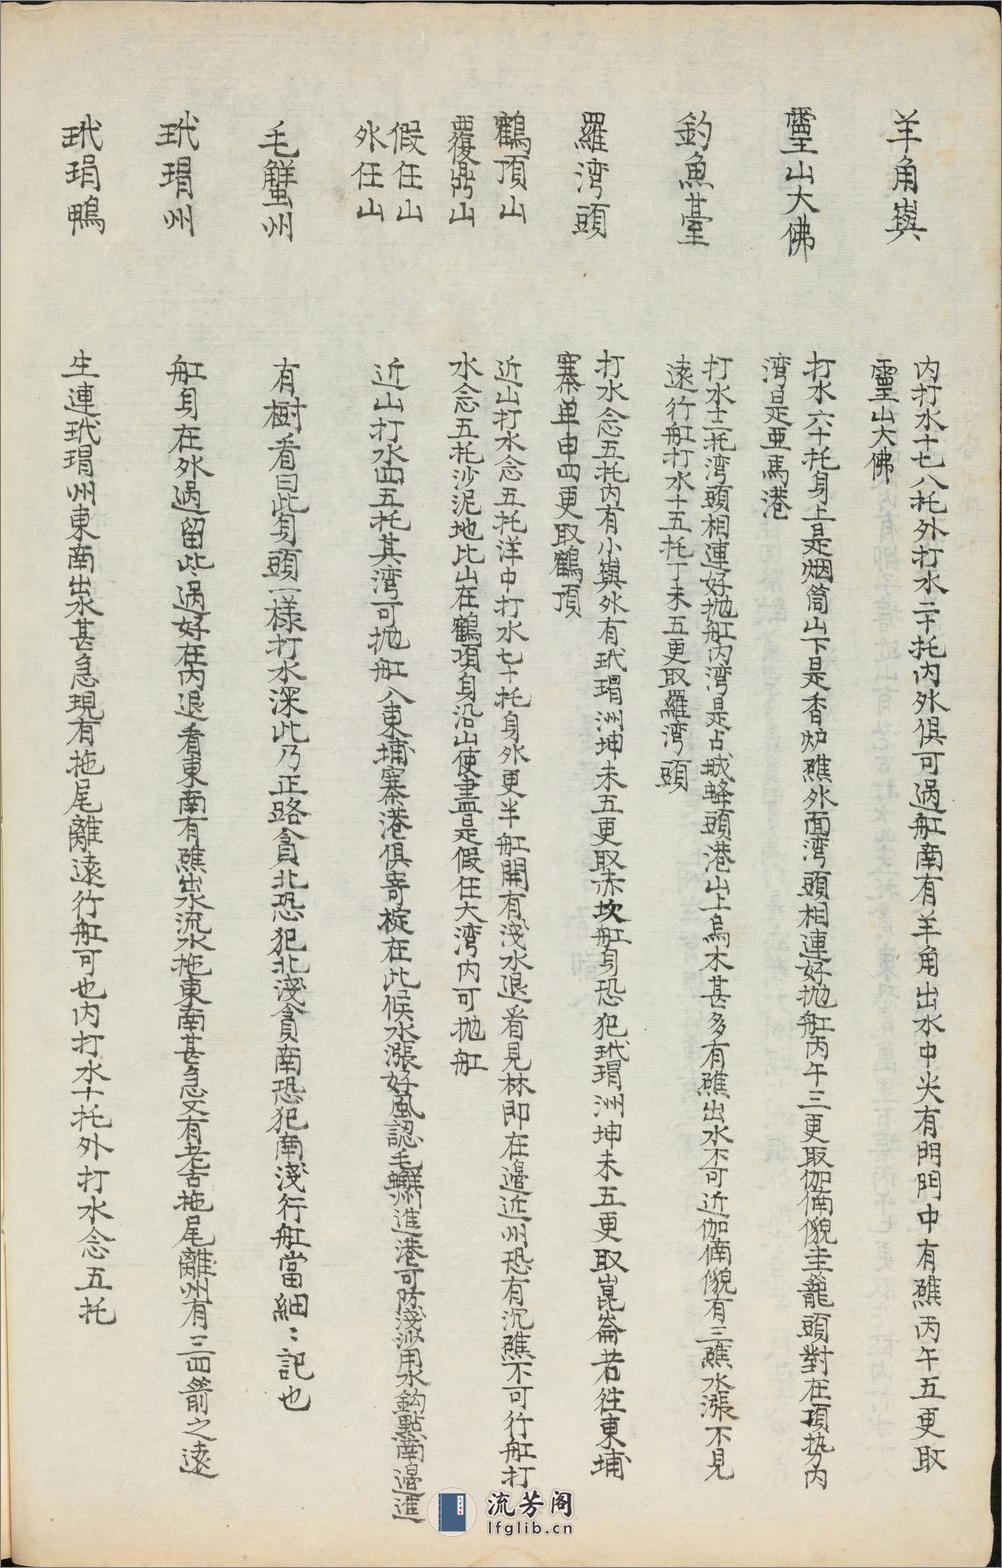 羊角嶼
内打水十七八托外打水二十托内外俱可過舡南有羊角出水中央有門門中有礁丙午五更取
靈山大佛
靈山大佛
打水六十托身上是烟筒山下是香炉礁外面湾頭相連好抛舡丙午三更取伽俑貌圭籠頭對在項势内
湾是亞馬港
釣魚䑓
打水十二托湾頭相連好抛舡内湾是占城蜂頭港出上烏木甚多有礁出水不可近伽俑貌有三礁水漲不見
遠行舡打水十五托丁未五更取羅湾頭
羅湾頭
打水念五托内有小嶼外有玳瑁洲坤未五更取赤坎舡身恐犯玳瑁洲坤未五更取崑崙若徃東埔
寨单申四更取鶴頂
鶴頂山
覆鼎山
近山打水念五托洋中打水七十托身外更半舡開有淺水退看見林即在邊近州恐有沉礁不可行舡打
水念五托沙泥地比山在鶴項身沿山使盡是假任大湾内可抛舡
假任山
外任山
近山打水四五托其湾可抛舡入東埔寨港俱寄椗在此候水漲好風認毛蟹洲進港可防淺沙用水鈎點南邊進
毛蟹州
有樹看曰此匀頭一樣打水深此乃正路貪北恐犯北淺貪南恐犯南淺行舡當細〻記也
玳瑁州
舡身在外過留此過好在内退看東南有礁出水流水拖東南甚急又有老古拖尾離州有三四箭之遠
玳瑁鴨
生連玳瑁州東南出水甚急現有拖尾離遠行舡可也内打水十托外打水念五托
流芳阁
lfglib.cn